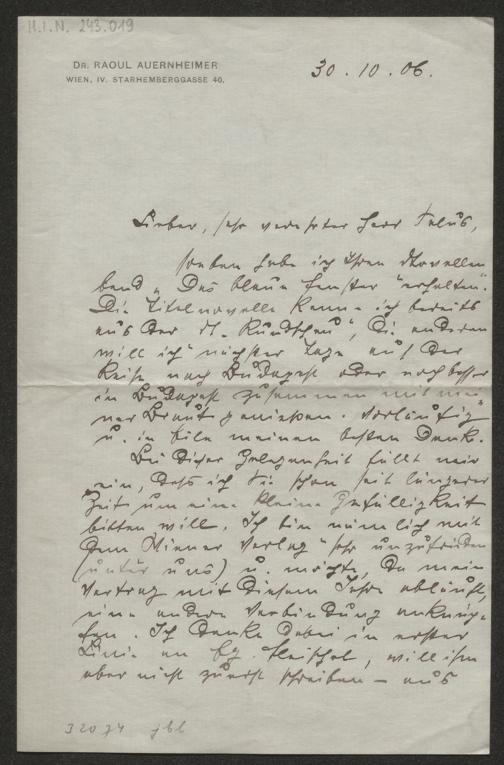 H.I.N. 243.019
DR. RAOUL AUERNHEIMER
WIEN, IV. STARHEMBERGGASSE 40.
30. 10. 06.
Lieber, sehr verehrter Herr Salus,
soeben habe ich Ihren Novellen-
band „Das blaue Fenster" erhalten.
Die Titelnovelle kenne ich bereits
aus der „N. Rundschau", die anderen
will ich nächster Tage auf der
Reise nach Budapest oder noch besser
in Budapest zusammen mit mei-
ner Braut genießen. Vorläufig
u. in Eile meinen besten Dank.
Bei dieser Gelegenheit fällt mir
ein, daß ich Sie schon seit längerer
Zeit um eine kleine Gefälligkeit
bitten will. Ich bin nämlich mit
dem „Wiener Verlag" sehr unzufrieden
(unter uns) u. möchte, da mein
Vertrag mit diesem Jahre abläuft,
eine andere Verbindung anknüp-
fen. Ich denke dabei in erster
Linie an Eg. Fleischel, will ihm
aber nicht zuerst schreiben – aus
32074